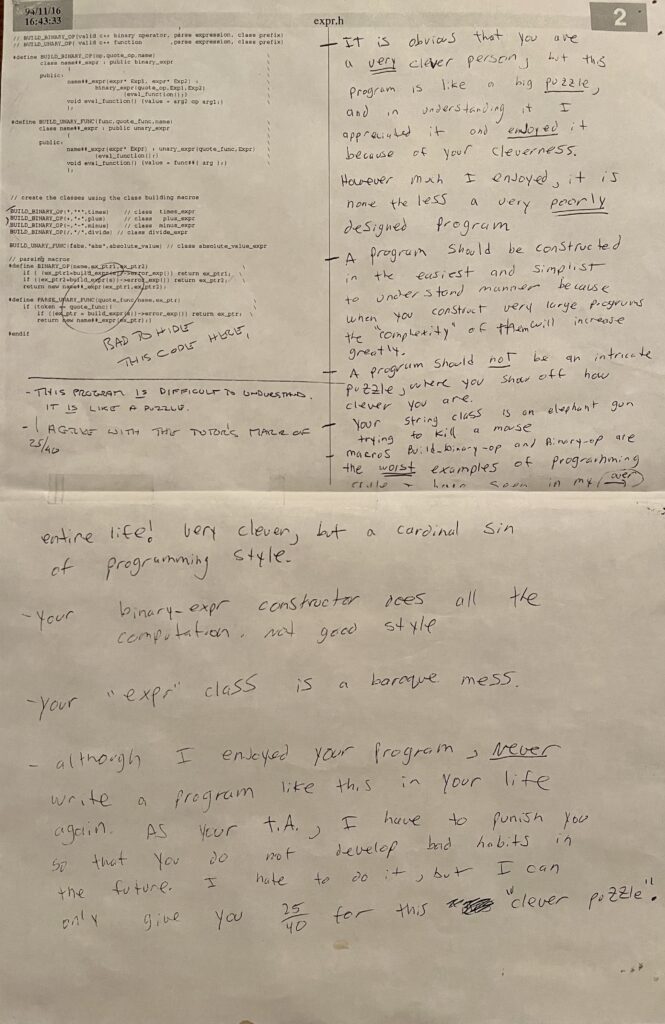 94/11/16
16:43:33
expr.h
2
// BUILD_BINARY_OP(valid c++ binary operator, parse expression, class prefix)
// BUILD_UNARY_OP( valid c++ function ,parse expression, class prefix)
#define BUILD_BINARY_OP(op,quote_op,name)
class name##_expr : public binary_expr
{
public:
name##_expr(expr* Exp1, expr* Exp2) :
binary_expr(quote_op,Exp1,Exp2)
{eval_function();}
void eval_function() {value = arg2 op arg1;}
};
#define BUILD_UNARY_FUNC(func,quote_func,name)
class name##_expr : public unary_expr
{
public:
name##_expr(expr* Expr) : unary_expr(quote_func,Expr)
{eval_function();}
void eval_function() {value = func##( arg );}
};
// create the classes using the class building macros
BUILD_BINARY_OP(*,"*",times) // class times_expr
BUILD_BINARY_OP(+,"+",plus) // class plus_expr
BUILD_BINARY_OP(-,"-",minus) // class minus_expr
BUILD_BINARY_OP(/,"/",divide) // class divide_expr
BUILD_UNARY_FUNC(fabs,"abs",absolute_value) // class absolute_value_expr
// parsing macros
#define BINARY_OP(name,ex_ptr1,ex_ptr2)
return new name##_expr(ex_ptr1,ex_ptr2);
#define PARSE_UNARY_FUNC(quote_func,name,ex_ptr)
if (token == quote_func)
return new name##_expr(ex_ptr);
#endif
BAD TO HIDE
THIS CODE HERE,
- THIS PROGRAM IS DIFFICULT TO UNDERSTAND.
IT IS LIKE A PUZZLE.
- I AGREE WITH THE TUTOR'S MARK OF
25/40
- It is obvious that you are
a very clever person, but this
program is like a big puzzle,
and in understanding it I
appreciated it and enjoyed it
because of your cleverness.
However much I enjoyed, it is
none the less a very poorly
designed program
- A program should be constructed
in the easiest and simplist
to understand manner because
when you construct very large programs
the "complexity" of them will increase
greatly.
- A program should not be an intricate
puzzle, where you show off how
clever you are.
- Your string class is an elephant gun
trying to kill a mouse
- macros Build-binary-op and Binary-op are
the worst examples of programming
style I have seen in my over
entire life! Very clever, but a cardinal sin
of programming style.
- Your binary-expr constructor does all the
computation. not good style
- Your "expr" class is a baroque mess.
- although I enjoyed your program, Never
write a program like this in your life
again. As your T.A., I have to punish you
so that you do not develop bad habits in
the future. I hate to do it, but I can
only give you 25/40 for this "clever puzzle".